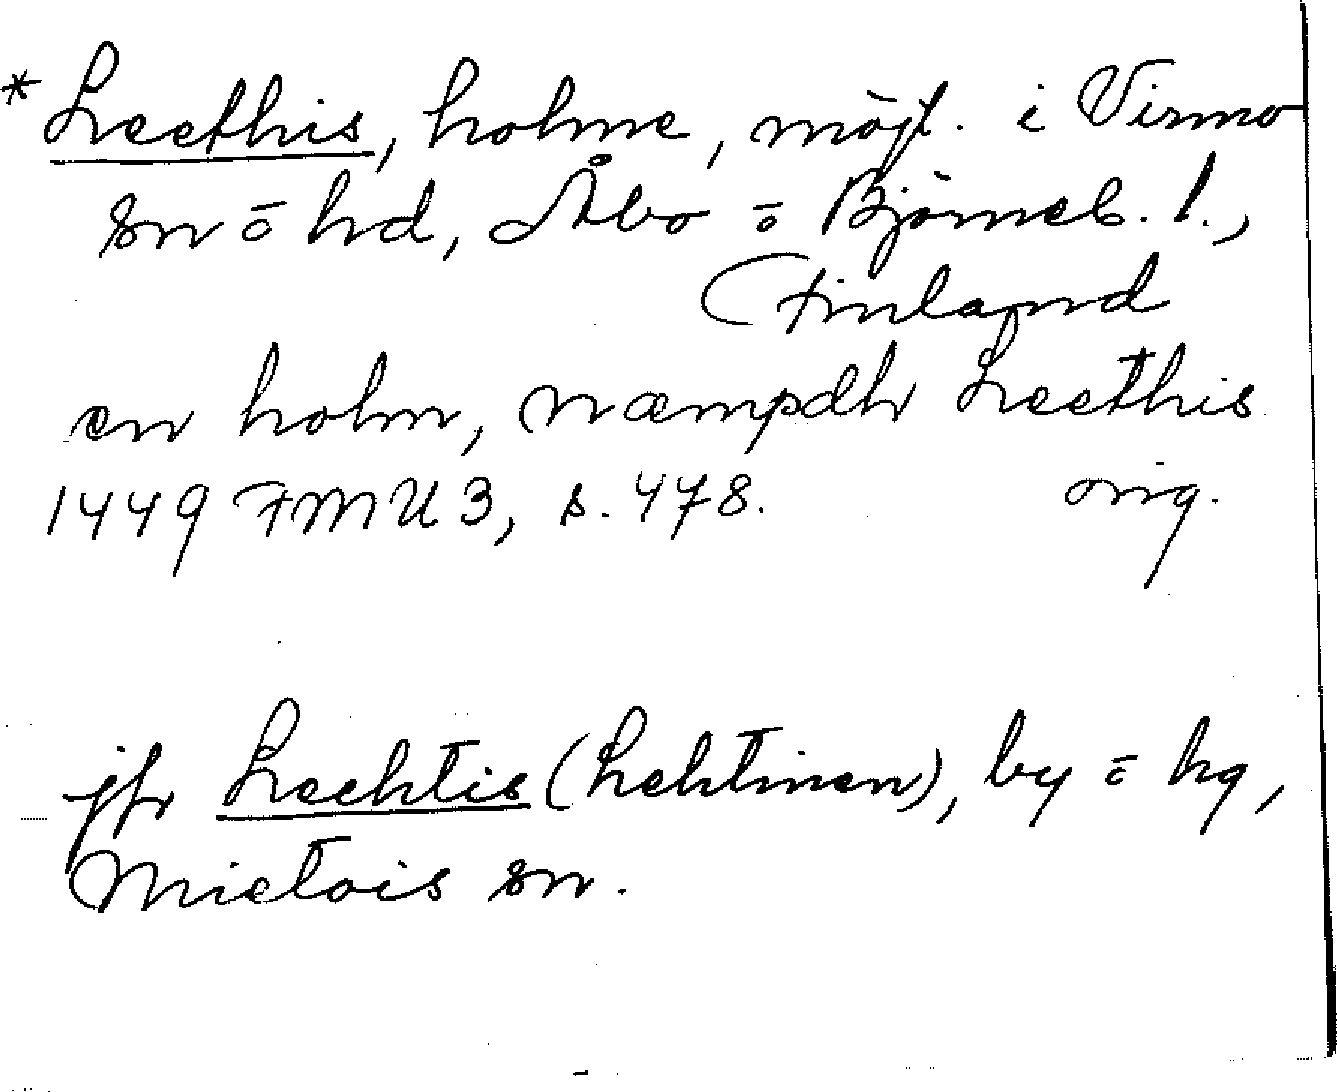 * Leethis, holme, möjl. i Virmo
sn o hd, Åbo o Björneb. l.,
Finland
en holm, næmpdh Leethis
1449 FMU 3, s. 478. orig.
jfr Leehtis (Lehtinen), by o hg,
Mietois sn.